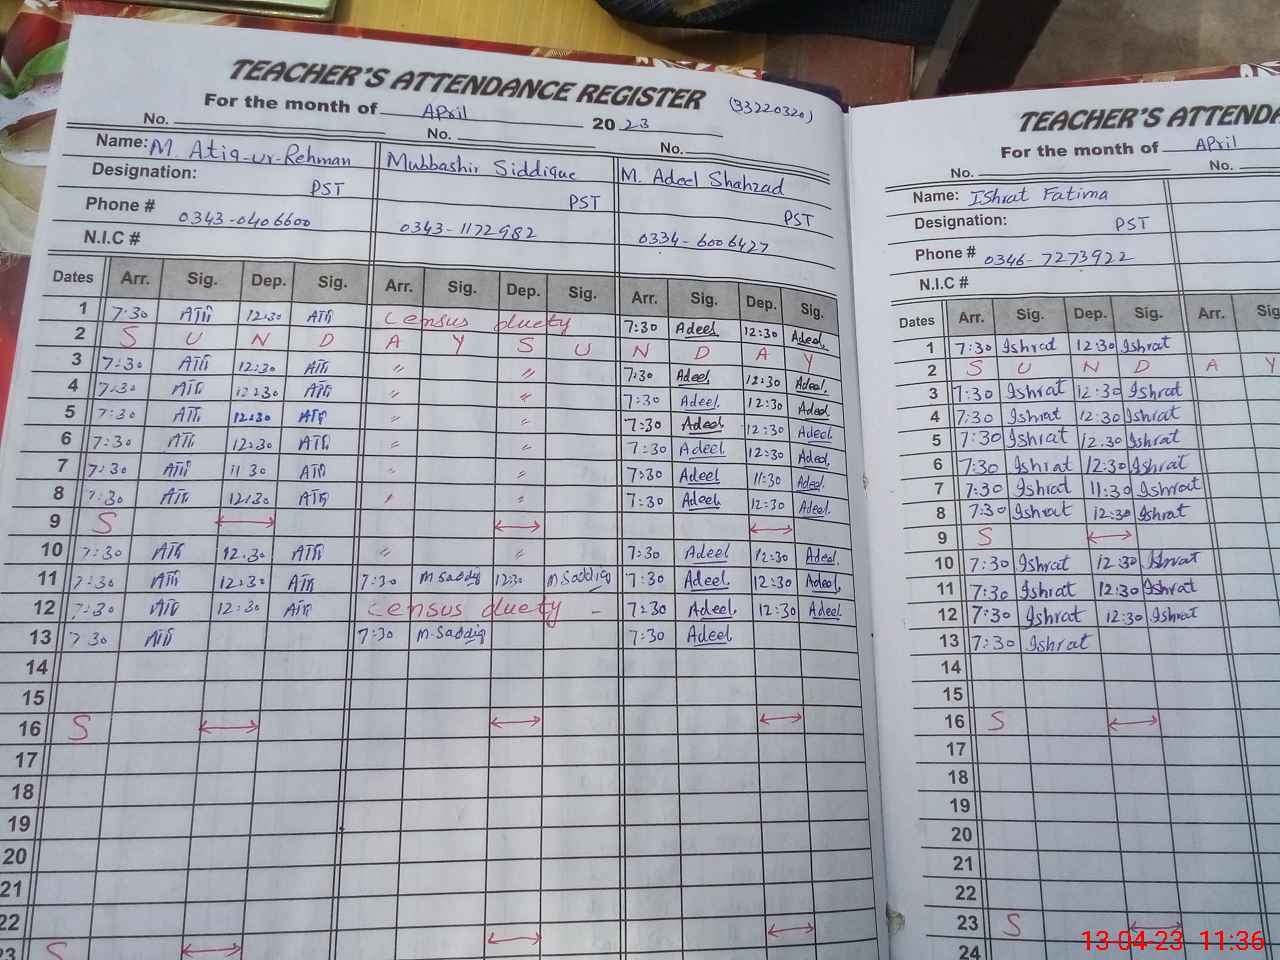 TEACHER'S ATTENDANCE REGISTER (33220320)
For the month of April 2023
No. No. No.
Name: M. Atiq-ur-Rehman Mubbashir Siddique M. Adeel Shahzad
Designation: PST PST PST
Phone # 0343-0406600 0343-1172982 0334-6006427
N.I.C #
Dates Arr. Sig. Dep. Sig. Arr. Sig. Dep. Sig. Arr. Sig. Dep. Sig.
1 7:30 ATR 12:30 ATR Census duety 7:30 Adeel 12:30 Adeel
2 S U N D A Y S U N D A Y
3 7:30 ATR 12:30 ATR " " 7:30 Adeel 12:30 Adeel
4 7:30 ATR 12:30 ATR " " 7:30 Adeel 12:30 Adeel
5 7:30 ATR 12:30 ATR " " 7:30 Adeel 12:30 Adeel
6 7:30 ATR 12:30 ATR " " 7:30 Adeel 12:30 Adeel
7 7:30 ATR 11:30 ATR " " 7:30 Adeel 11:30 Adeel
8 7:30 ATR 12:30 ATR " " 7:30 Adeel 12:30 Adeel
9 S
10 7:30 ATR 12:30 ATR " " 7:30 Adeel 12:30 Adeel
11 7:30 ATR 12:30 ATR 7:30 M Saddiq 12:30 M Saddiq 7:30 Adeel 12:30 Adeel
12 7:30 ATR 12:30 ATR Census duety - 7:30 Adeel 12:30 Adeel
13 7:30 ATR 7:30 M-Saddiq 7:30 Adeel
14
15
16 S
17
18
19
20
21
22
23 S
TEACHER'S ATTENDA
For the month of April
No. No.
Name: Ishrat Fatima
Designation: PST
Phone # 0346-7273922
N.I.C #
Dates Arr. Sig. Dep. Sig. Arr. Sig
1 7:30 Ishrat 12:30 Ishrat
2 S U N D A Y
3 7:30 Ishrat 12:30 Ishrat
4 7:30 Ishrat 12:30 Ishrat
5 7:30 Ishrat 12:30 Ishrat
6 7:30 Ishrat 12:30 Ishrat
7 7:30 Ishrat 11:30 Ishrat
8 7:30 Ishrat 12:30 Ishrat
9 S
10 7:30 Ishrat 12:30 Ishrat
11 7:30 Ishrat 12:30 Ishrat
12 7:30 Ishrat 12:30 Ishrat
13 7:30 Ishrat
14
15
16 S
17
18
19
20
21
22
23 S
24
13-04-23 11:36